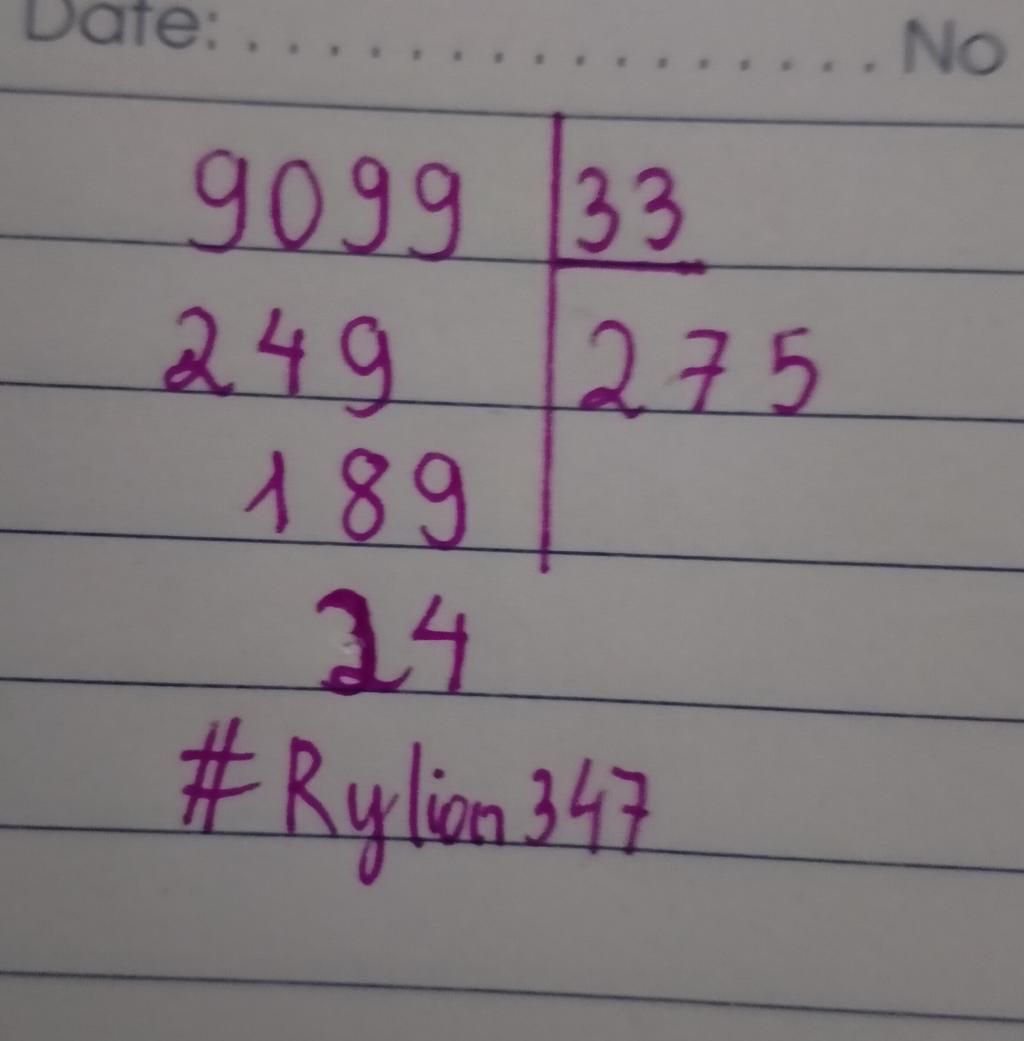 Date: .................. No
9099 33
249 275
189
24
#Rylion347